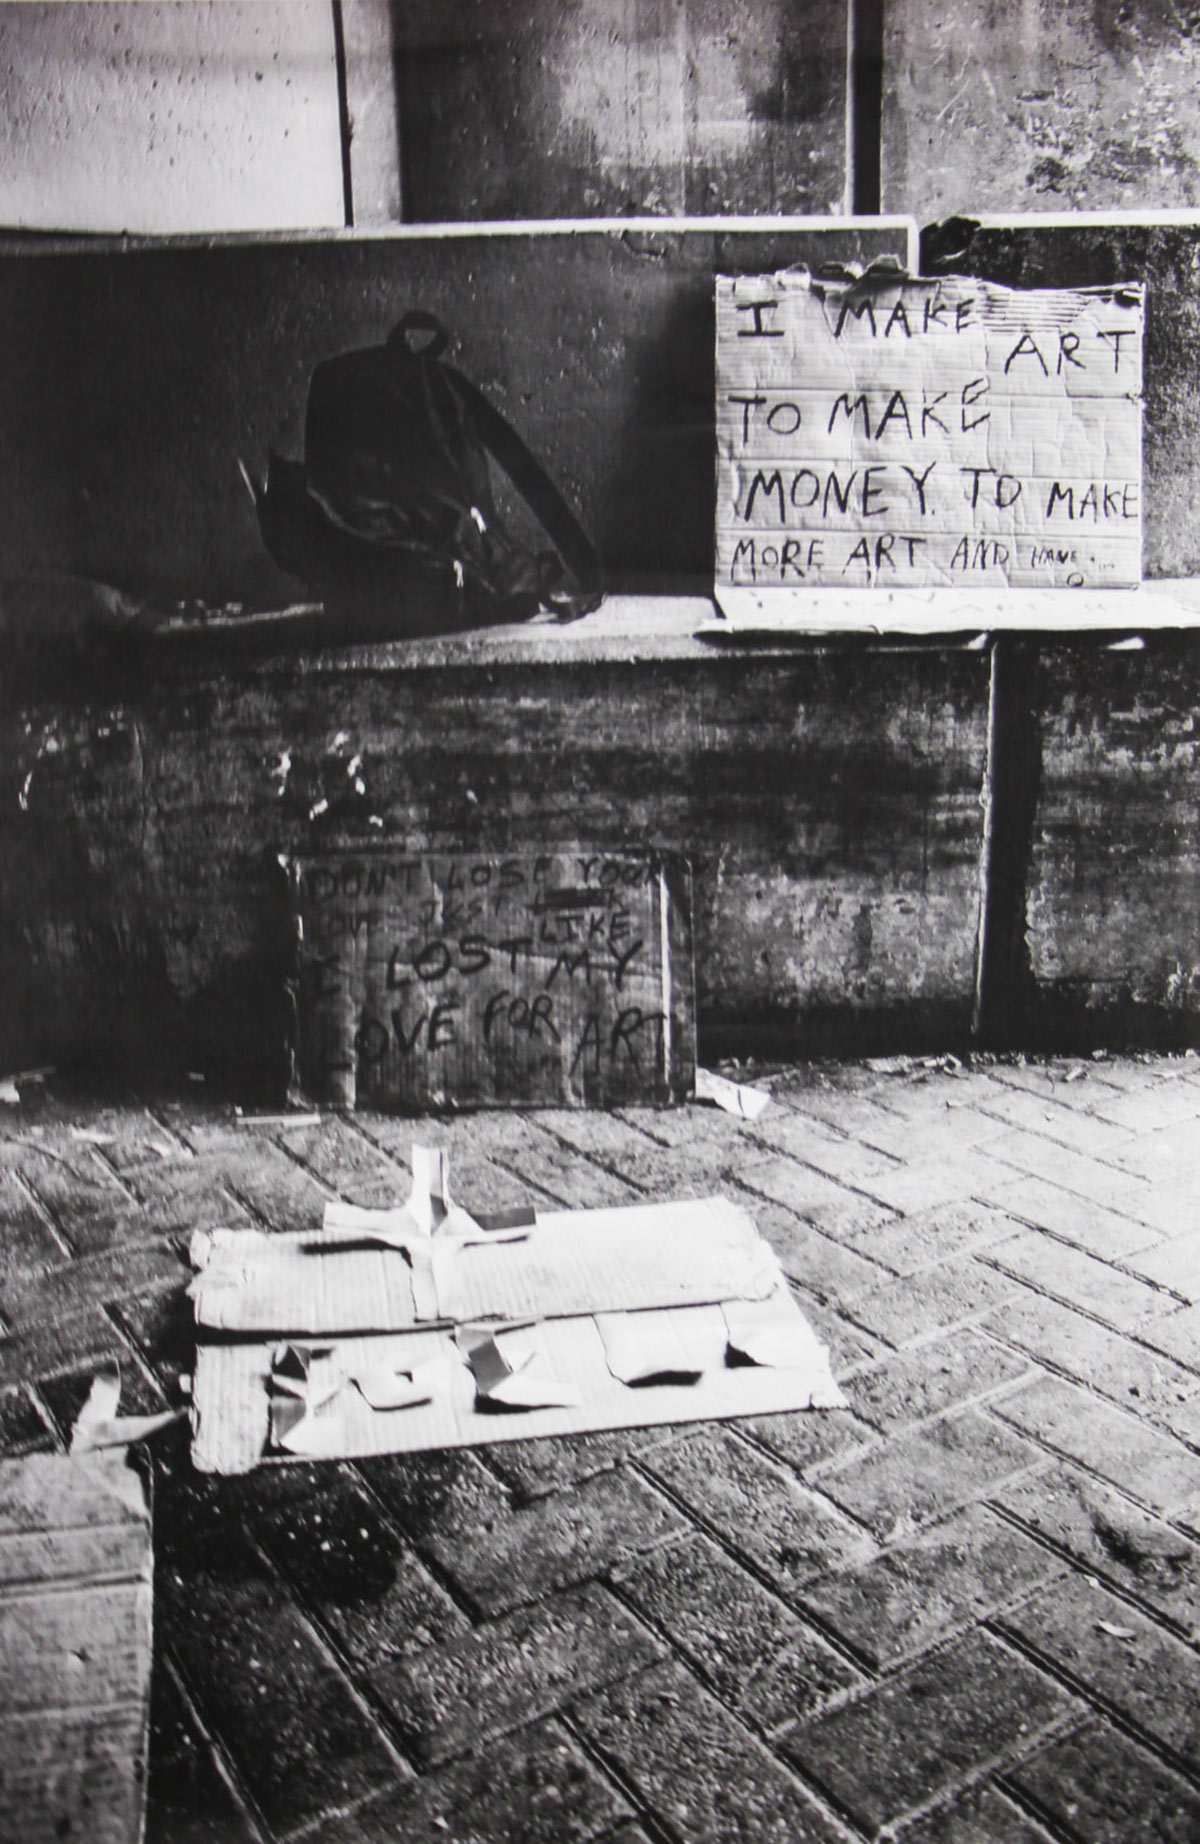 I MAKE ART
TO MAKE
MONEY. TO MAKE
MORE ART AND HAVE
DON'T LOSE YOUR
LOVE JUST LIKE
I LOST MY
LOVE FOR ART